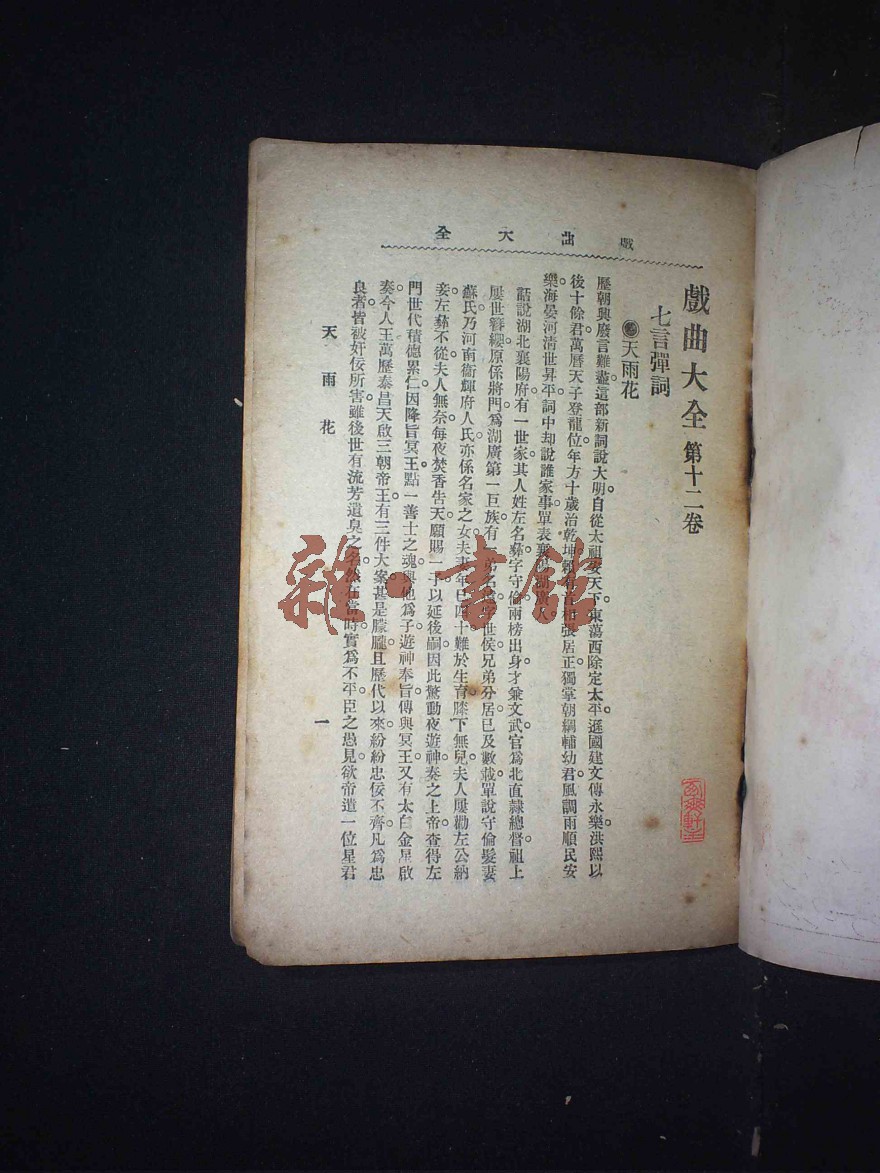 戲曲大全
戲曲大全 第十二卷
七言彈詞
天雨花
歷朝興廢言難盡這部新詞說大明自從太祖安天下東蕩西除定太平遜國建文傳永樂洪熙以
後十餘君萬曆天子登龍位年方十歲治乾坤賴有首相張居正獨掌朝綱輔幼君風調雨順民安
樂海晏河淸世昇平詞中却說誰家事單表襄陽湖廣人
話說湖北襄陽府有一世家其人姓左名彝字守倫兩榜出身才兼文武官爲北直隸總督祖上
屢世簪纓原係將門爲湖廣第一巨族有一弟名 世侯兄弟分居已及數載單說守倫髮妻
蘇氏乃河南衞輝府人氏亦係名家之女夫妻年已四十難於生育膝下無兒夫人屢勸左公納
妾左彝不從夫人無奈每夜焚香告天願賜一子以延後嗣因此驚動夜遊神奏之上帝查得左
門世代積德累仁因降旨冥王點一善士之魂與他爲子遊神奉旨傳與冥王又有太白金星啟
奏今人王萬歷泰昌天啟三朝帝王有三件大案甚是朦朧且歷代以來紛紛忠佞不齊凡爲忠
良者皆被奸佞所害雖後世有流芳遺臭之名然在當時實爲不平臣之愚見欲帝遣一位星君
天雨花
一
雜·書館